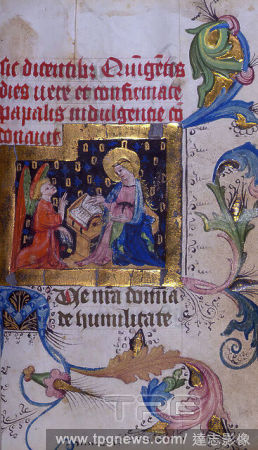 sic dicentib; Quingetis
dies vere et confirmate
papalis indulgentie cō
donauit
De nr̄a domina
de humilitate
TPG
www.tpgnews.com/達志影像